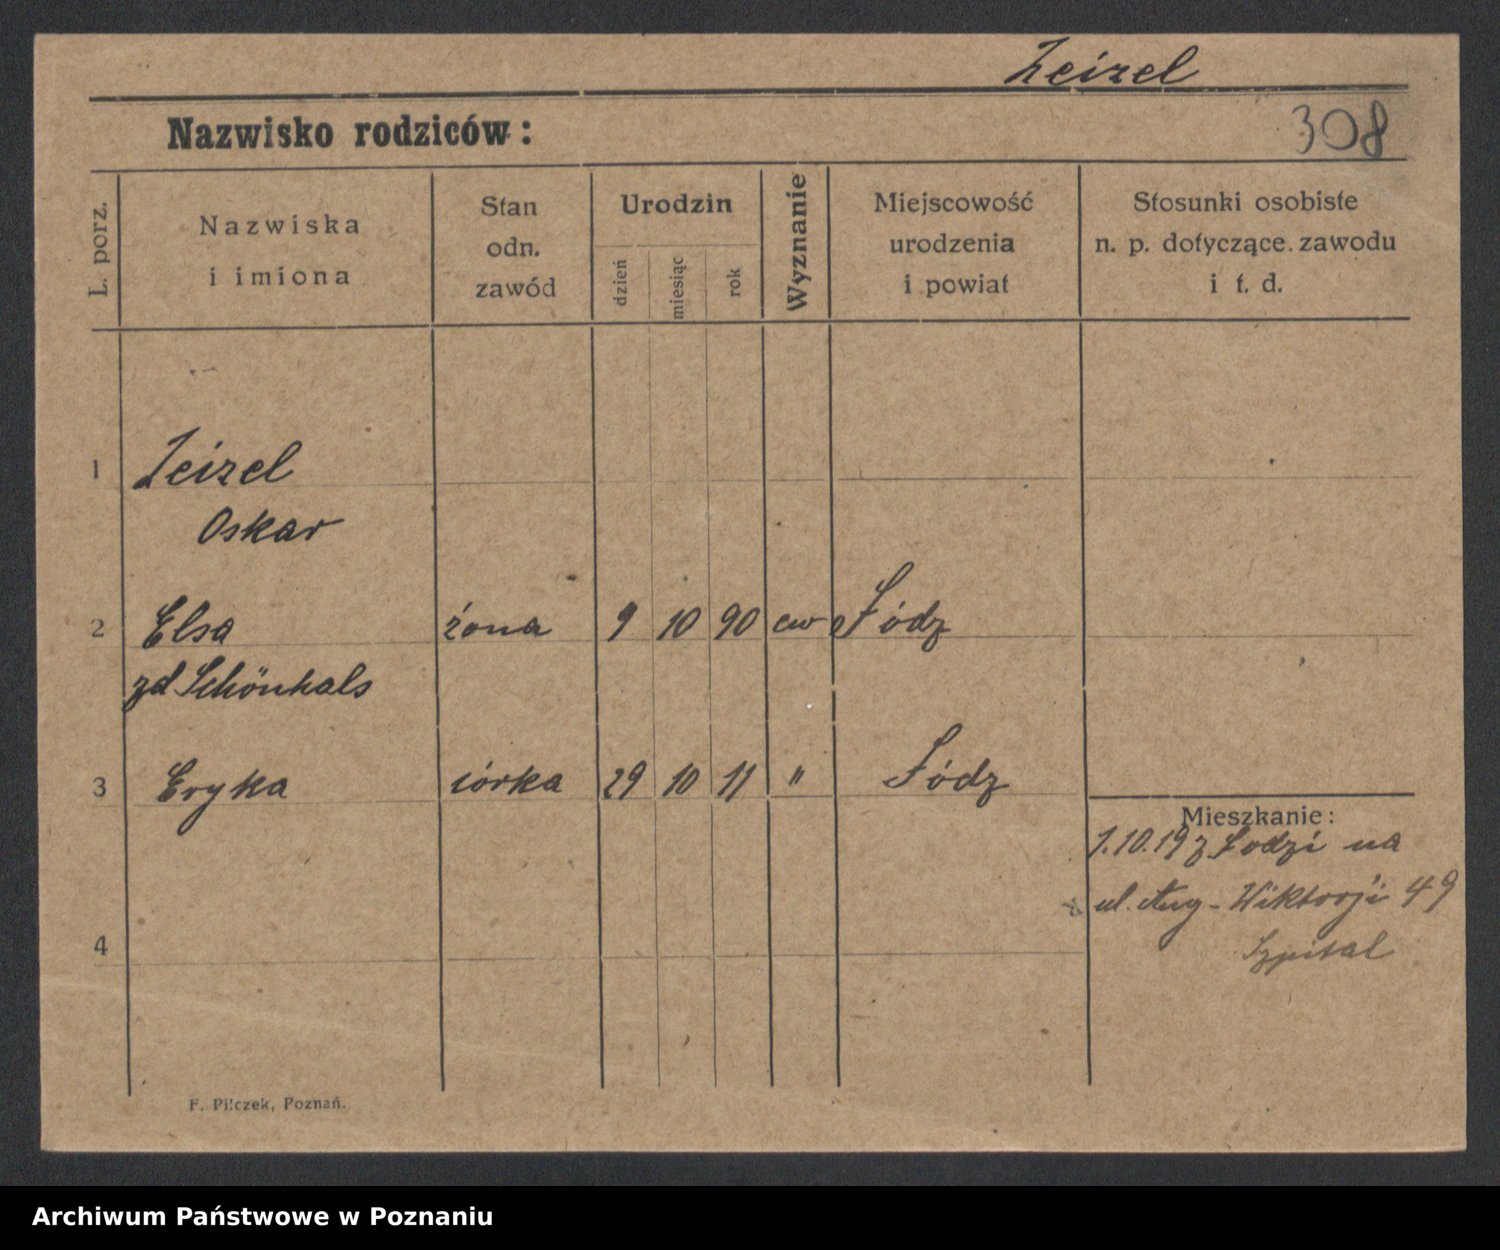 Zeizel
Nazwisko rodziców:
308
L. porz.
Nazwiska
i imiona
Stan
odn.
zawód
Urodzin
dzień
miesiąc
rok
Wyznanie
Miejscowość
urodzenia
i powiat
Stosunki osobiste
n. p. dotyczące zawodu
i t. d.
1 Zeizel
Oskar
2 Elsa żona 9 10 90 ew Łódz
zd Schönhals
3 Eryka córka 29 10 11 " Łódz
Mieszkanie:
1.10.19 z Łodzi na
ul. Aug-Wiktorji 49
Szpital
4
F. Pilczek, Poznań.
Archiwum Państwowe w Poznaniu